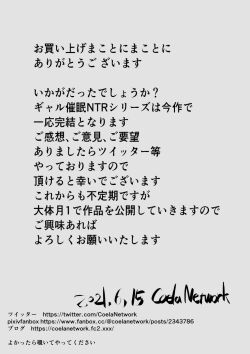 お買い上げまことにまことに
ありがとうございます
いかがだったでしょうか？
ギャル催眠NTRシリーズは今作で
一応完結となります
ご感想、ご意見、ご要望
ありましたらツイッター等
やっておりますので
頂けると幸いでございます
これからも不定期ですが
大体月1で作品を公開していきますので
ご興味あれば
よろしくお願いいたします
2021,6,15 Coela Network
ツイッター　https://twitter.com/CoelaNetwork
pixivfanbox https://www.fanbox.cc/@coelanetwork/posts/2343786
ブログ　https://coelanetwork.fc2.xxx/
よかったら覗いてやってください